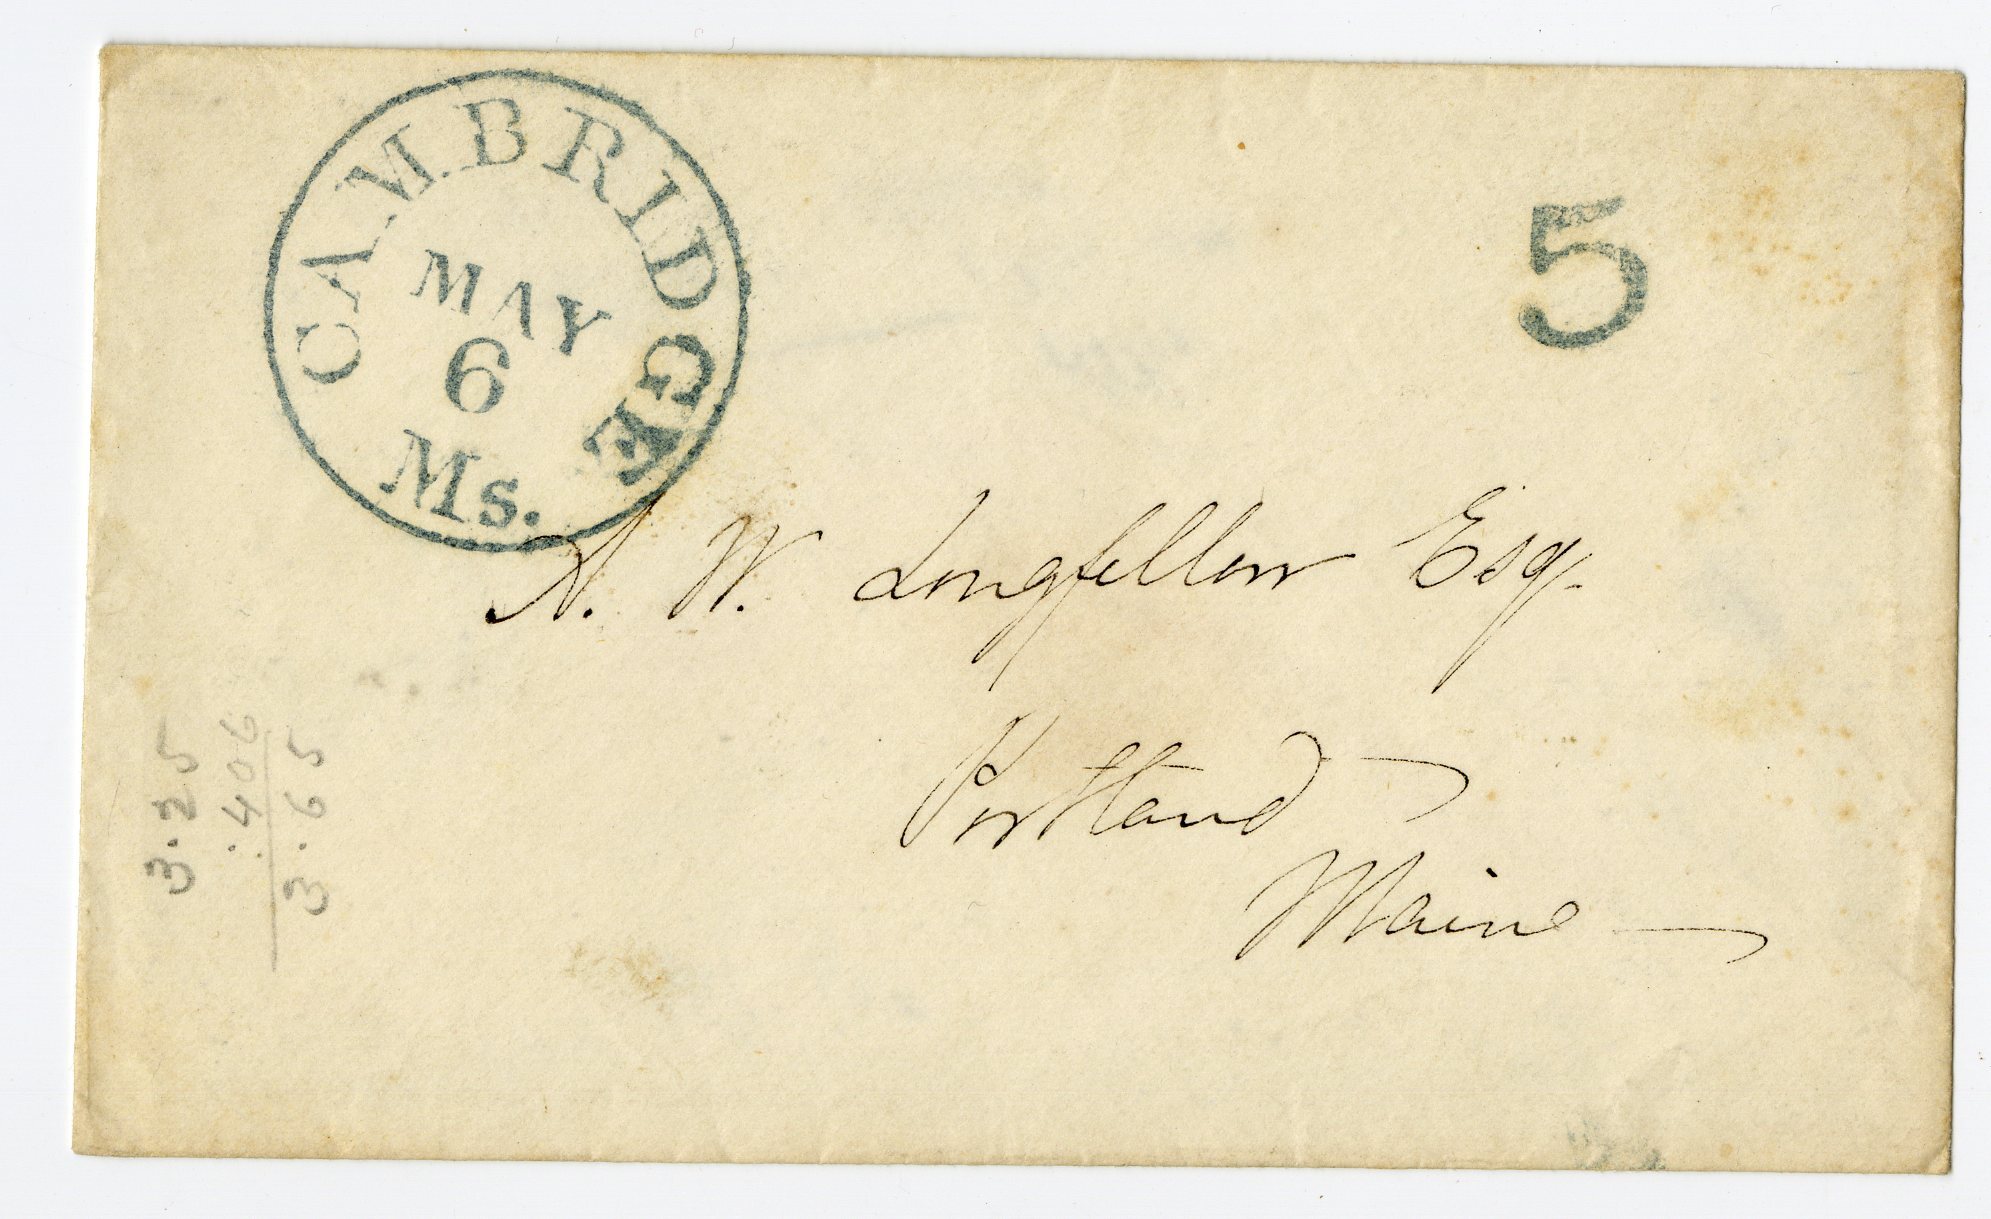 CAMBRIDGE
MAY
6
Ms.
5
A. W. Longfellow Esq.
Portland
Maine
3.25
.406
3.65